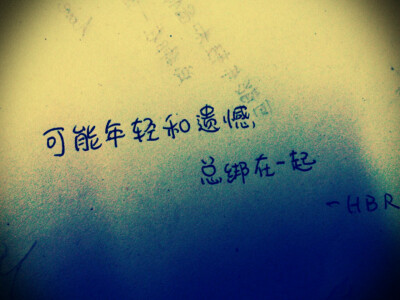 可能年轻和遗憾,
总绑在一起
-HBR